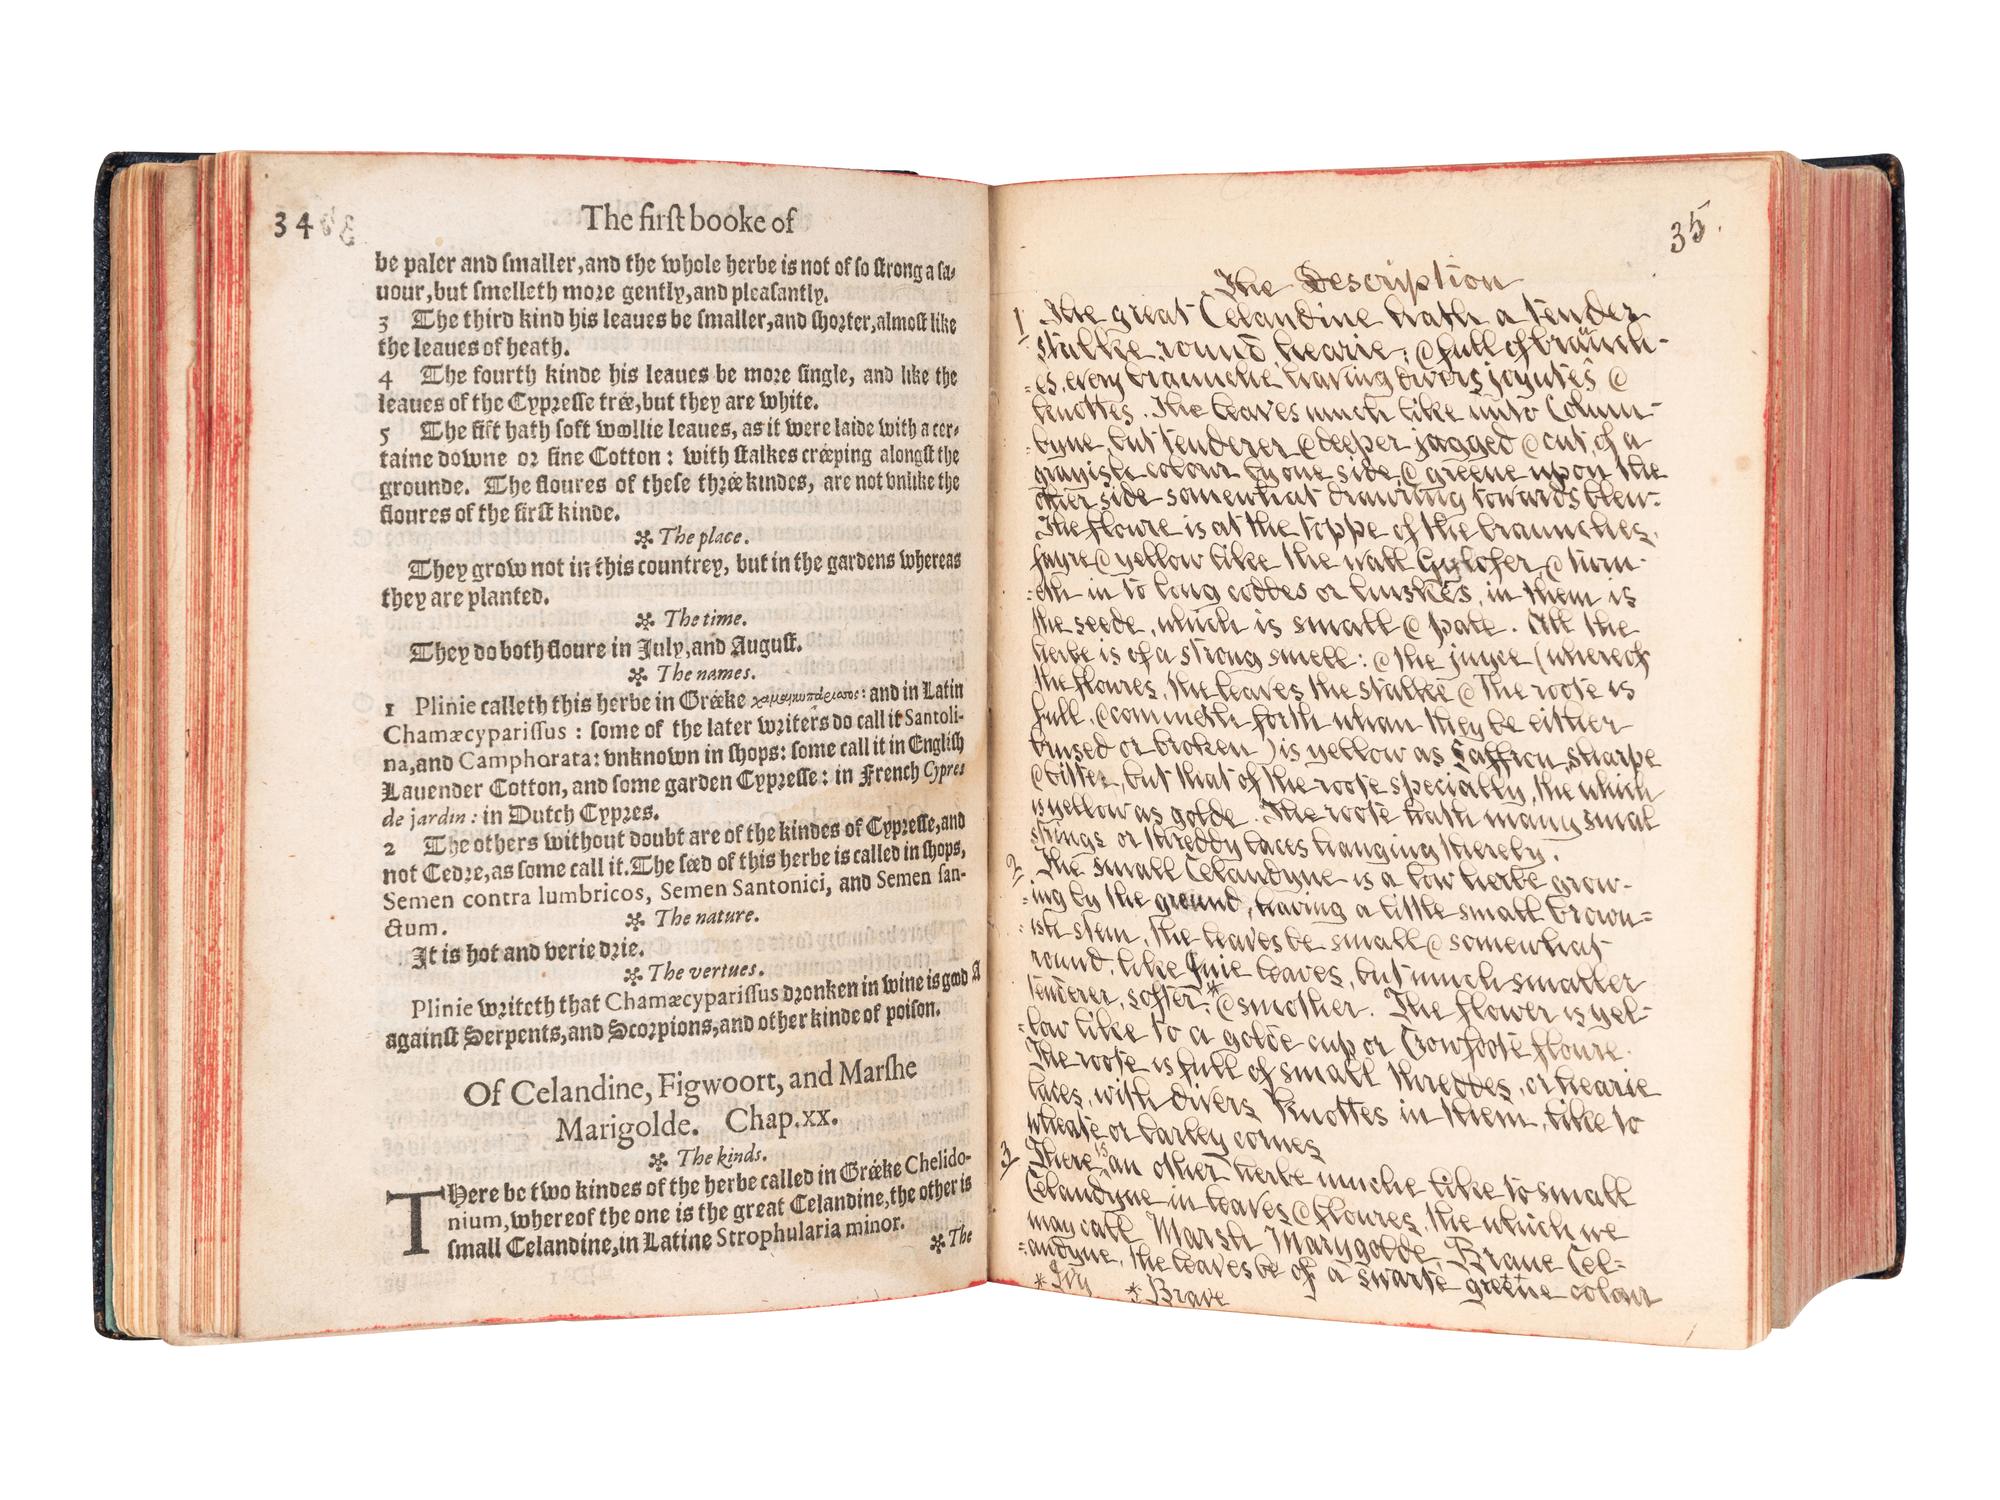 34
The first booke of
be paler and smaller, and the whole herbe is not of so strong a sa-
uour, but smelleth more gently, and pleasantly.
3 The third kind his leaues be smaller, and shorter, almost like
the leaues of heath.
4 The fourth kinde his leaues be more single, and like the
leaues of the Cypresse trée, but they are white.
5 The fift hath soft woollie leaues, as it were laide with a cer-
taine downe or fine Cotton: with stalkes créeping alongst the
grounde. The floures of these thrée kindes, are not vnlike the
floures of the first kinde.
✣ The place.
They grow not in this countrey, but in the gardens whereas
they are planted.
✣ The time.
They do both floure in July, and August.
✣ The names.
1 Plinie calleth this herbe in Gréeke χαμαικυπάρισσος: and in Latin
Chamæcyparissus: some of the later writers do call it Santoli-
na, and Camphorata: vnknown in shops: some call it in English
Lauender Cotton, and some garden Cypresse: in French Cypres
de jardin: in Dutch Cypres.
2 The others without doubt are of the kindes of Cypresse, and
not Cedre, as some call it. The séed of this herbe is called in shops,
Semen contra lumbricos, Semen Santonici, and Semen san-
ctum.
✣ The nature.
It is hot and verie drie.
✣ The vertues.
Plinie writeth that Chamæcyparissus dronken in wine is good A
against Serpents, and Scorpions, and other kinde of poison.
Of Celandine, Figwoort, and Marshe
Marigolde. Chap.xx.
✣ The kinds.
There be two kindes of the herbe called in Gréeke Chelido-
nium, whereof the one is the great Celandine, the other is
small Celandine, in Latine Strophularia minor.
✣ The
35.
The Description
1 The great Celandine hath a tender
stalke, round, hearie, @ full of braunch-
=es, every braunche having divers joyntes @
knottes. The leaves much like unto Colum-
byne but tenderer @ deeper jagged @ cut, of a
grayish colour by one side, @ greene upon the
other side somewhat drawing towards blew.
The floure is at the toppe of the braunches,
fayre @ yellow like the wall Gylofer, @ turn-
=eth in to long coddes or huskes, in them is
the seede, which is small @ pale. All the
herbe is of a strong smell: @ the juyce (whereof
the floures, the leaves the stalke @ the roote is
full, @ commeth forth whan they be either
brused or broken) is yellow as Saffron, sharpe
@ bitter, but that of the roote specially, the which
is yellow as golde. The roote hath many smal
strings or threddy laces hanging thereby.
2 The small Celandyne is a low herbe grow-
=ing by the ground, having a little small brown=
=ish stem, the leaves be small @ somewhat
round, like Ivie leaves, but much smaller
tenderer, softer, @ smother. The flower is yel-
=low like to a golde cup or Crowfoote floure.
The roote is full of small threddes, or hearie
laces, with divers knottes in them, like to
wheate or barley cornes
3 There is an other herbe muche like to small
Celandyne in leaves @ floures, the which we
may call Marsh Marygolde, Braue Cel=
=andyne, the leaves be of a swarte greene colour
* Ivy * Brave